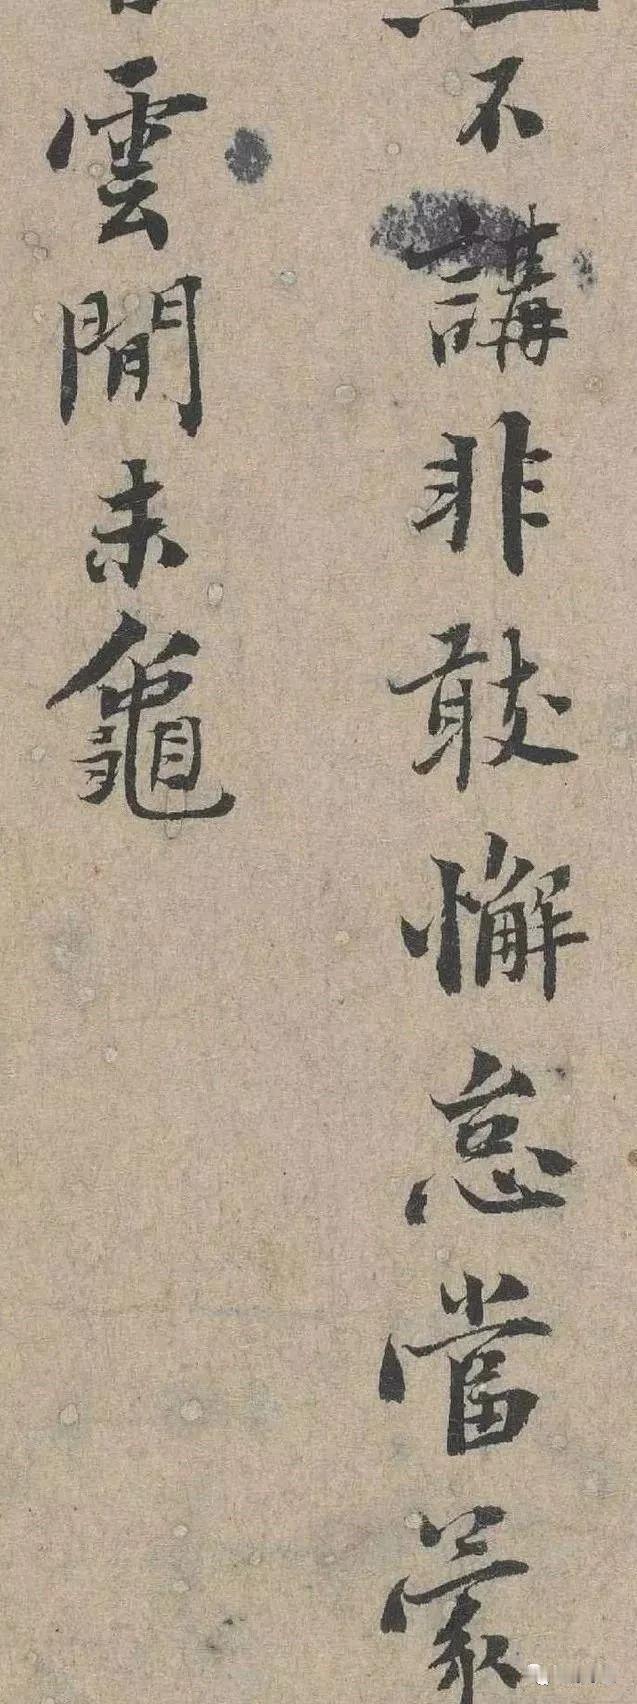 不講非敢懈怠當蒙
雲閒未龜